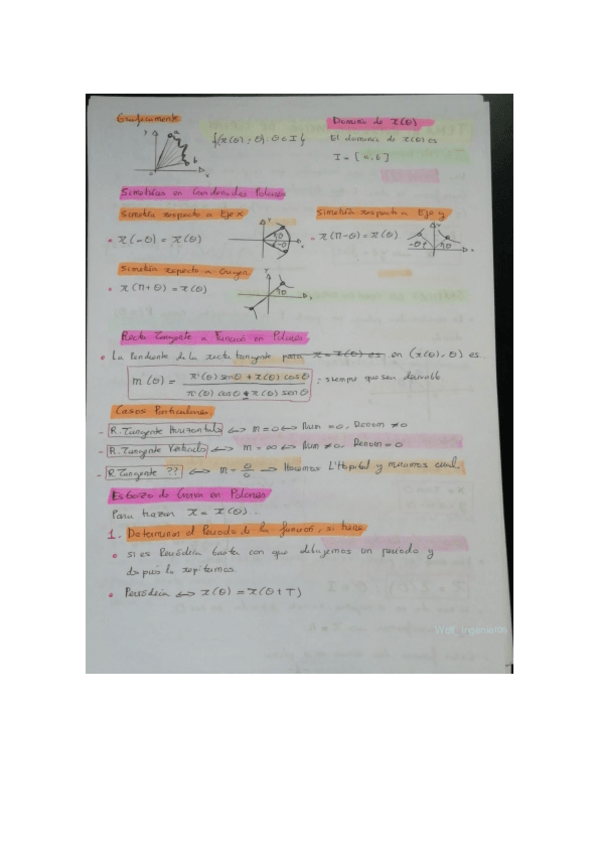 Gráficamente
{(r(θ), θ). θ ∈ I}
Dominio de r(θ)
El dominio de r(θ) es
I = [a, b]
Simetrías en Coordenadas Polares
Simetría respecto a Eje X
• r(-θ) = r(θ)
Simetría respecto a Eje y
• r(π-θ) = r(θ)
Simetría respecto a Origen
• r(π+θ) = r(θ)
Recta Tangente a Función en Polares
• La Pendiente de la recta tangente para r = r(θ) es en (r(θ), θ) es
m(θ) = r'(θ) senθ + r(θ) cosθ / r'(θ) cosθ - r(θ) senθ ; siempre que sea derivable
Casos Particulares
- R. Tangente Horizontal ⟺ m = 0 ⟺ Num = 0, Denom ≠ 0
- R. Tangente Vertical ⟺ m = ∞ ⟺ Num ≠ 0, Denom = 0
- R Tangente ?? ⟺ m = 0/0 → Hacemos L'Hopital y miramos cual.
Esbozo de Curva en Polares
Para trazar r = r(θ)
1. Determinar el Periodo de la función, si tiene
• si es Periódica basta con que dibujemos un periodo y
después lo repitamos
• Periódica ⟺ r(θ) = r(θ+T)